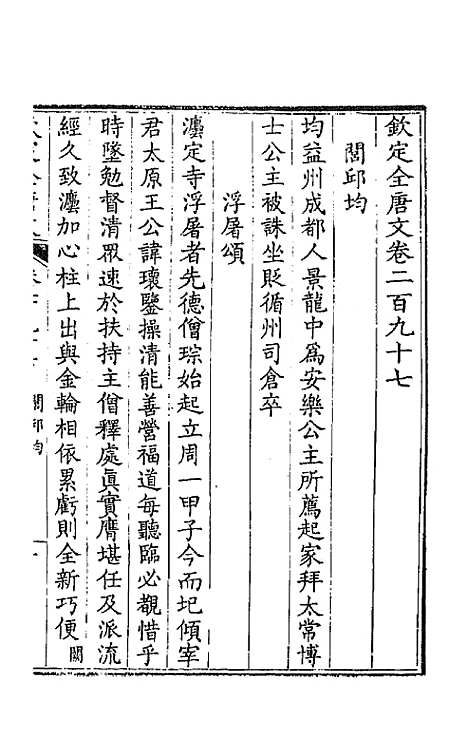 欽定全唐文卷二百九十七
閭邱均
均益州成都人景龍中爲安樂公主所薦起家拜太常博
士公主被誅坐貶循州司倉卒
浮屠頌
灋定寺浮屠者先德僧琮始起立周一甲子今而圮傾宰
君太原王公諱瓌鑒操清能善營福道每聽臨必觀惜乎
時墜勉督清眾速於扶持主僧釋處眞實膺堪任及派流
經久致灋加心柱上出與金輪相依累虧則全新巧便闕
閭邱均
一